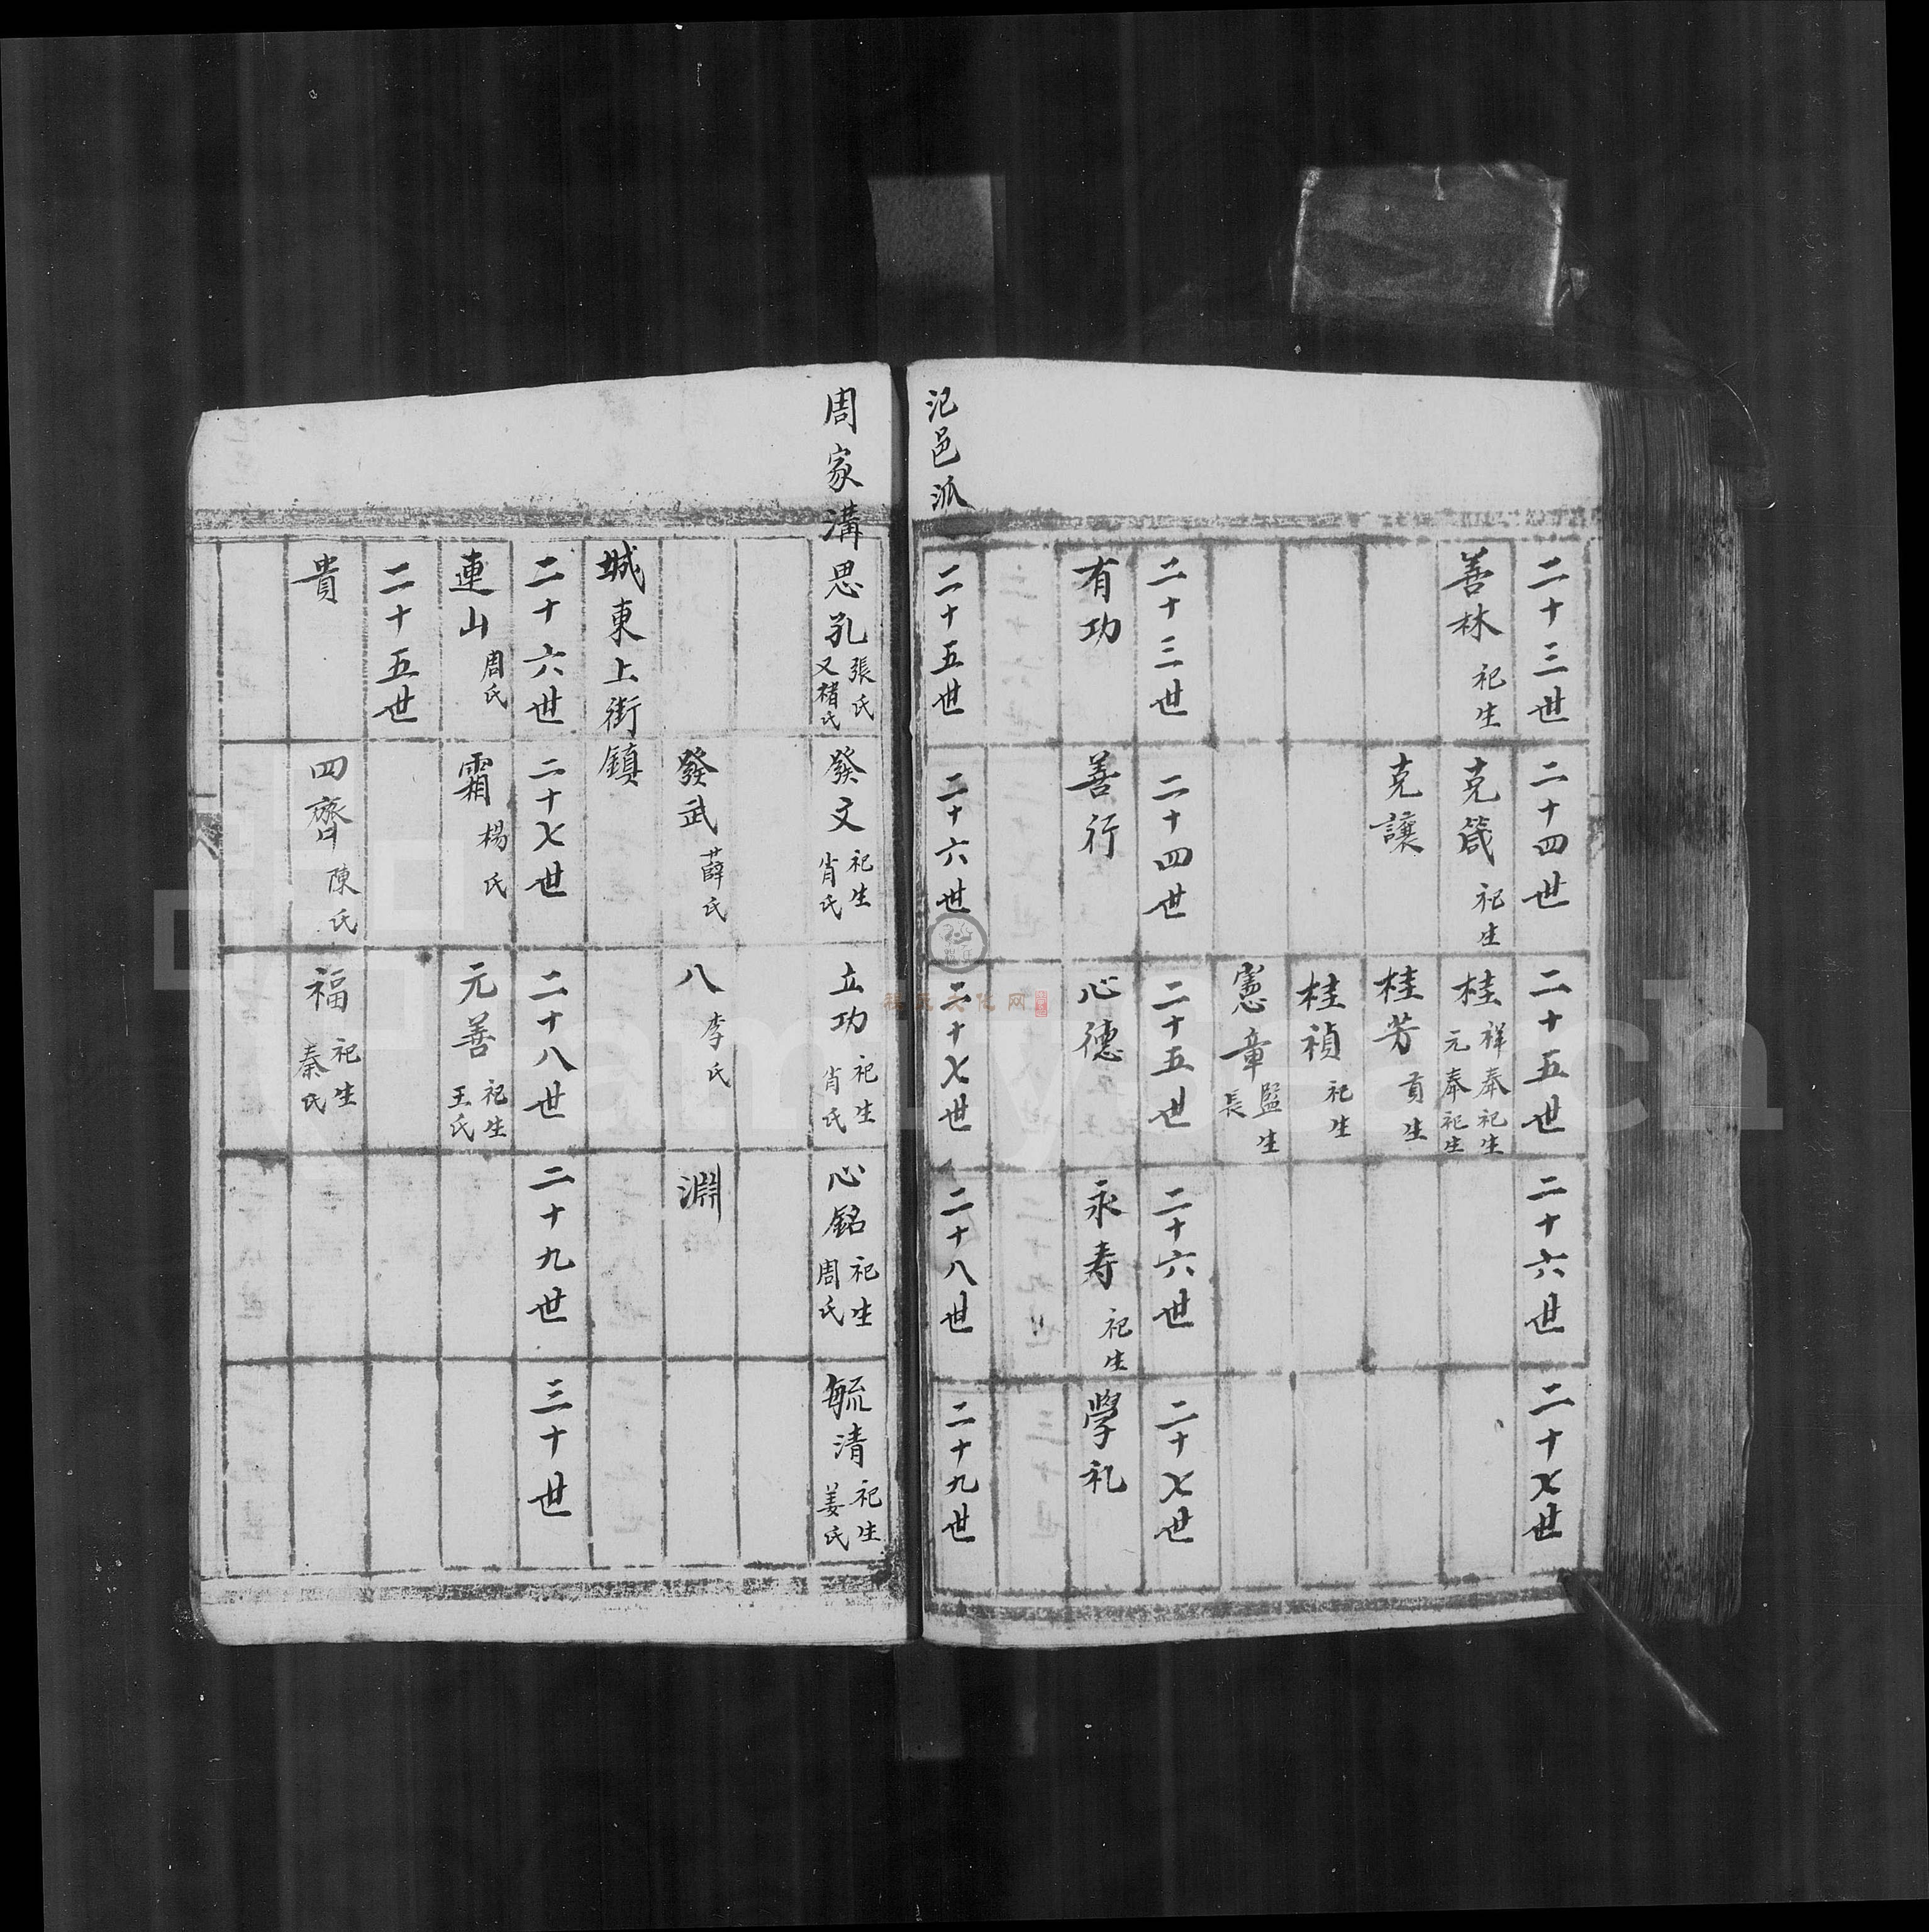 二十三世 二十四世 二十五世 二十六世 二十七世
善林 祀生 克箴 祀生 桂 祥奉祀生 元奉祀生
克讓 桂芳 貢生
桂禎 祀生
憲章 監生 長
二十三世 二十四世 二十五世 二十六世 二十七世
有功 善行 心德 永寿 祀生 學礼
二十五世 二十六世 二十七世 二十八世 二十九世
汜邑派
周家溝 思孔 張氏 又褚氏 發文 祀生 肖氏 立功 祀生 肖氏 心銘 祀生 周氏 毓清 祀生 姜氏
發武 薛氏 八 李氏 淵
城東上街鎮
二十六世 二十七世 二十八世 二十九世 三十世
連山 周氏 霜 楊氏 元善 祀生 王氏
二十五世
貴 四齊 陳氏 福 祀生 秦氏